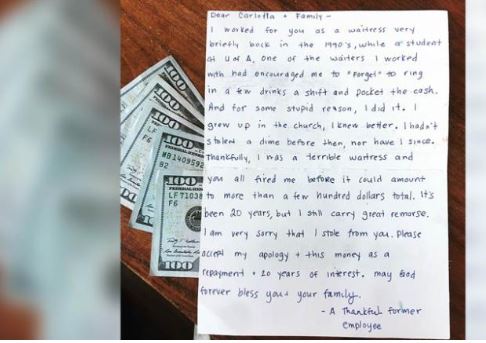 Dear Carlotta + Family -
I worked for you as a waitress very
briefly back in the 1990's, while a student
at U of A. One of the waiters I worked
with had encouraged me to "forget" to ring
in a few drinks a shift and pocket the cash.
And for some stupid reason, I did it. I
grew up in the church, I knew better. I hadn't
stolen a dime before then, nor have I since.
Thankfully, I was a terrible waitress and
you all fired me before it could amount
to more than a few hundred dollars total. It's
been 20 years, but I still carry great remorse.
I am very sorry that I stole from you. Please
accept my apology + this money as a
repayment + 20 years of interest. may God
forever bless you + your family.
- A Thankful former
employee
100
100
100
LF
F6
100
MB1409592
B2
100
LF7103
F6
100